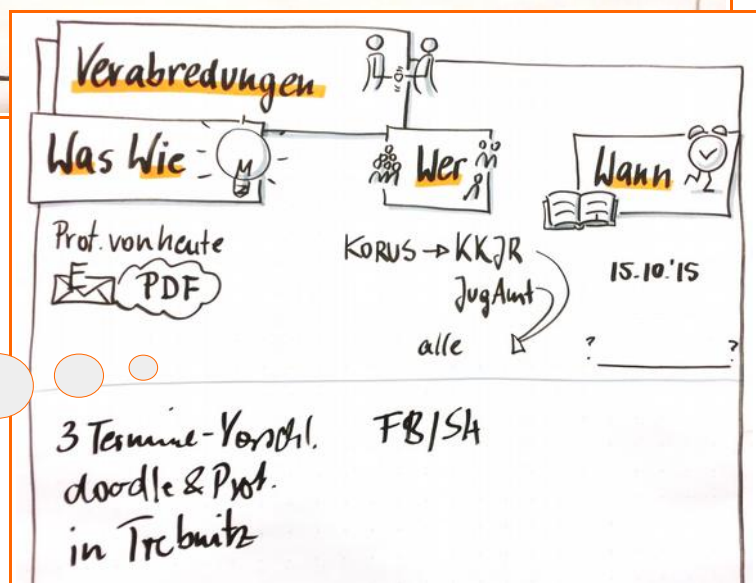 Verabredungen
Was Wie
Wer
Wann
Prot. von heute
E PDF
KORUS → KKJR
JugAmt
alle
15.10.'15
? ?
3 Termine-Vorschl.
doodle & Prot.
in Trebnitz
FB/SH